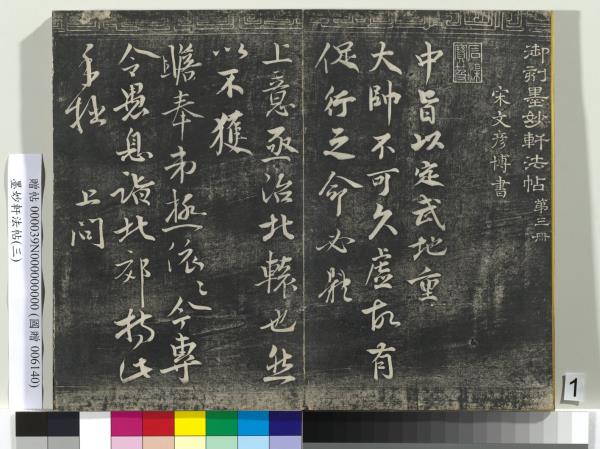 御刻墨妙軒法帖 第三冊
宋文彥博書
中旨以定武地重
大帥不可久虛故有
促行之命必體
上意亟治北轅也然
以不獲
瞻奉弟極依依今專
令愚息詣北郊持此
手狀 上問
贈帖 000039N000000000 (國贈 006140)
墨妙軒法帖(三)
1